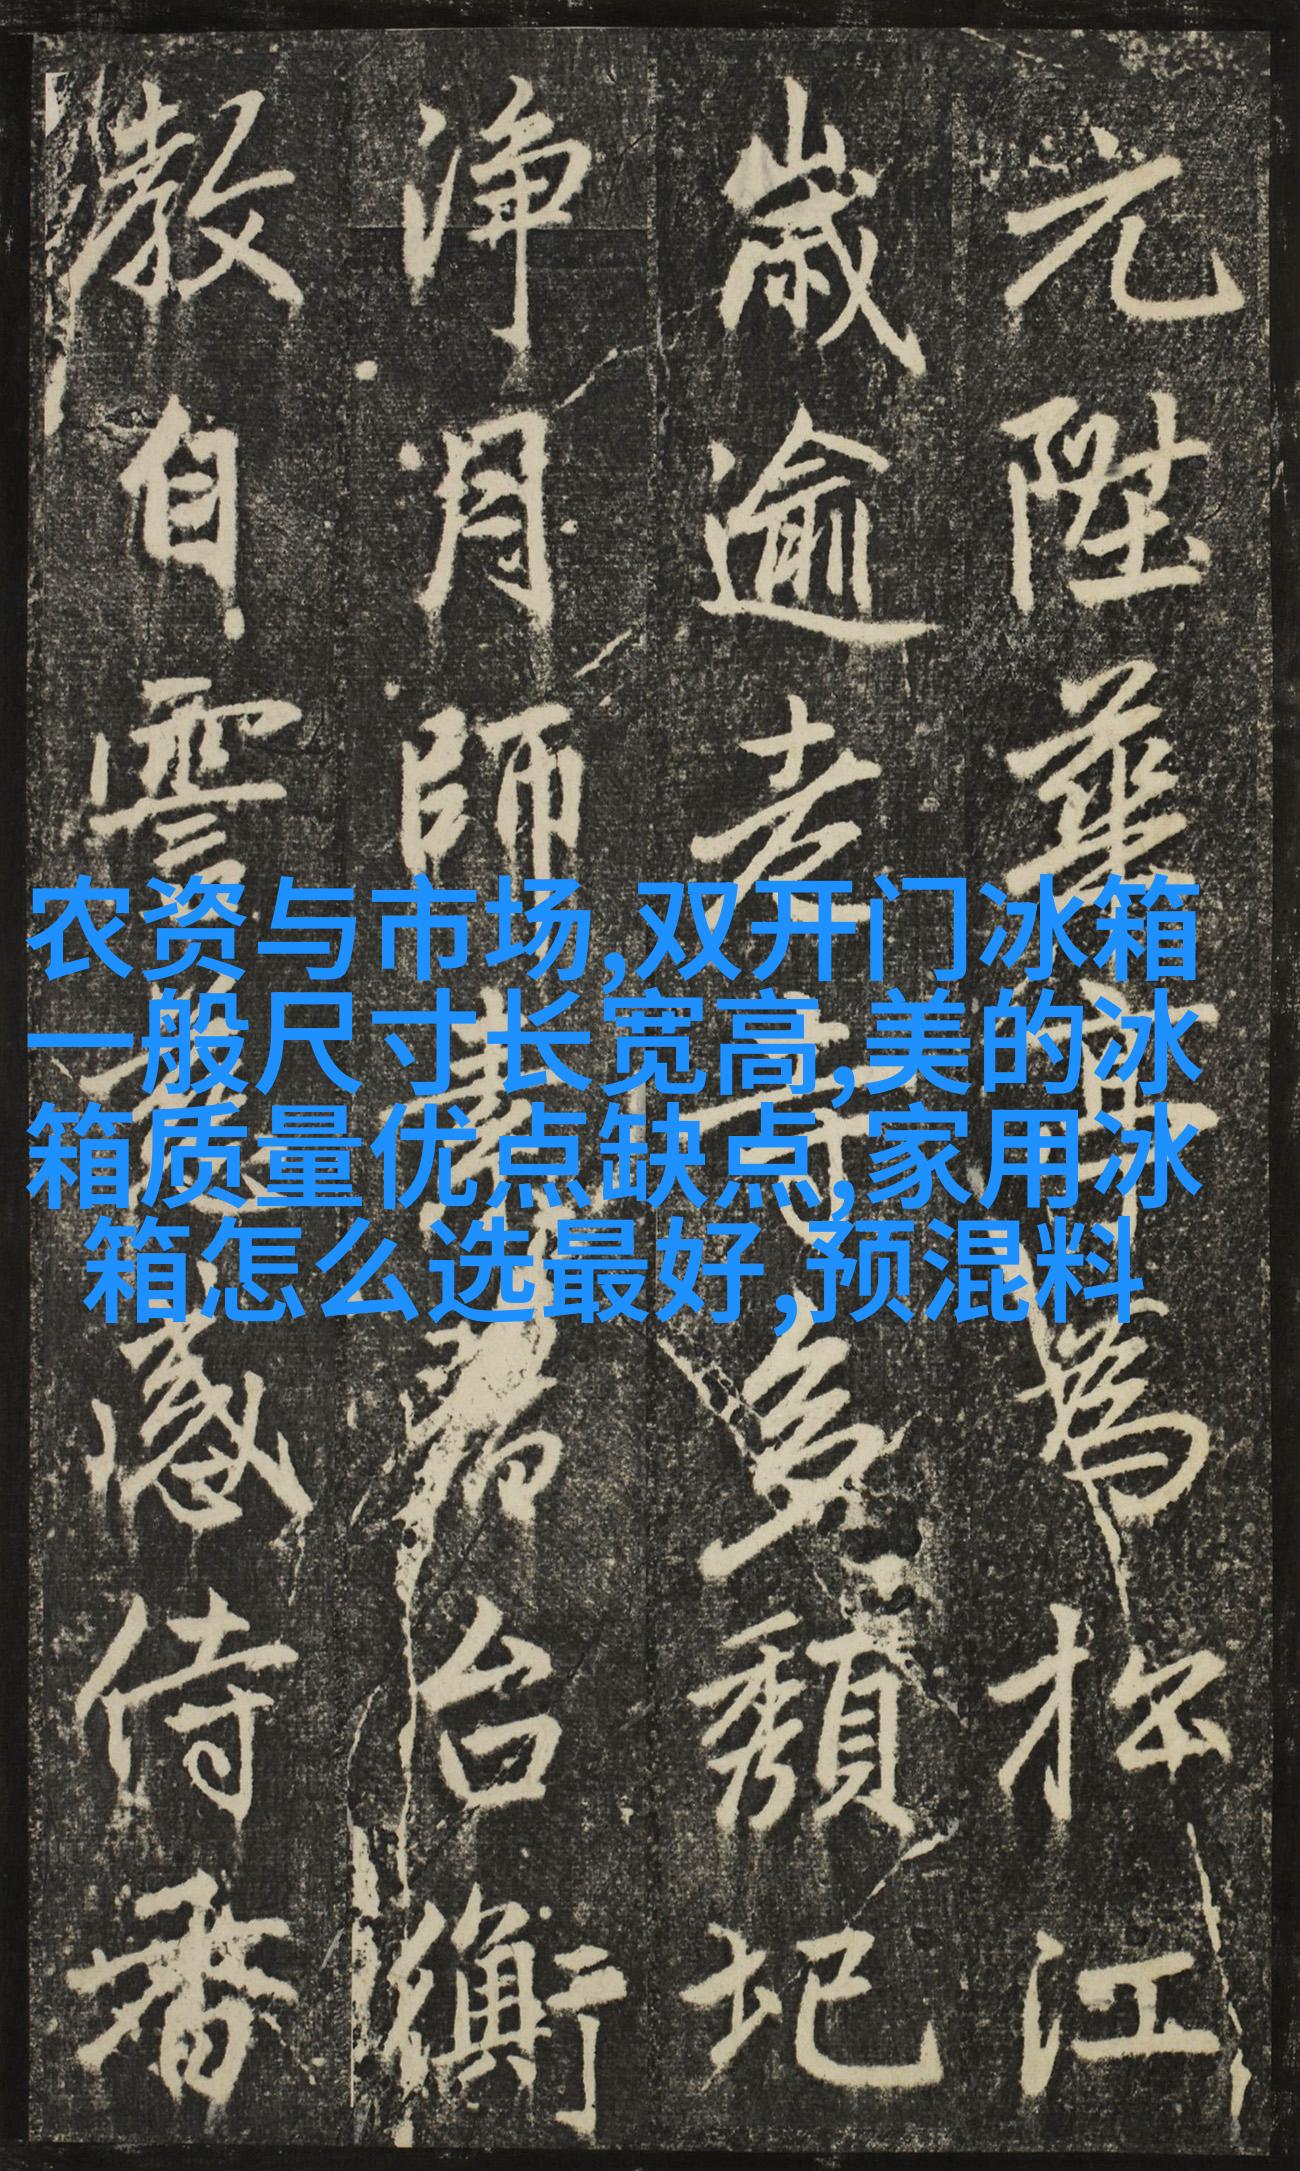 农资与市场,双开门冰箱
一般尺寸长宽高,美的冰
箱质量优点缺点,家用冰
箱怎么选最好,预混料
元陞華為於江
歲逾老多頹圮
淨月師台衡
教自感侍